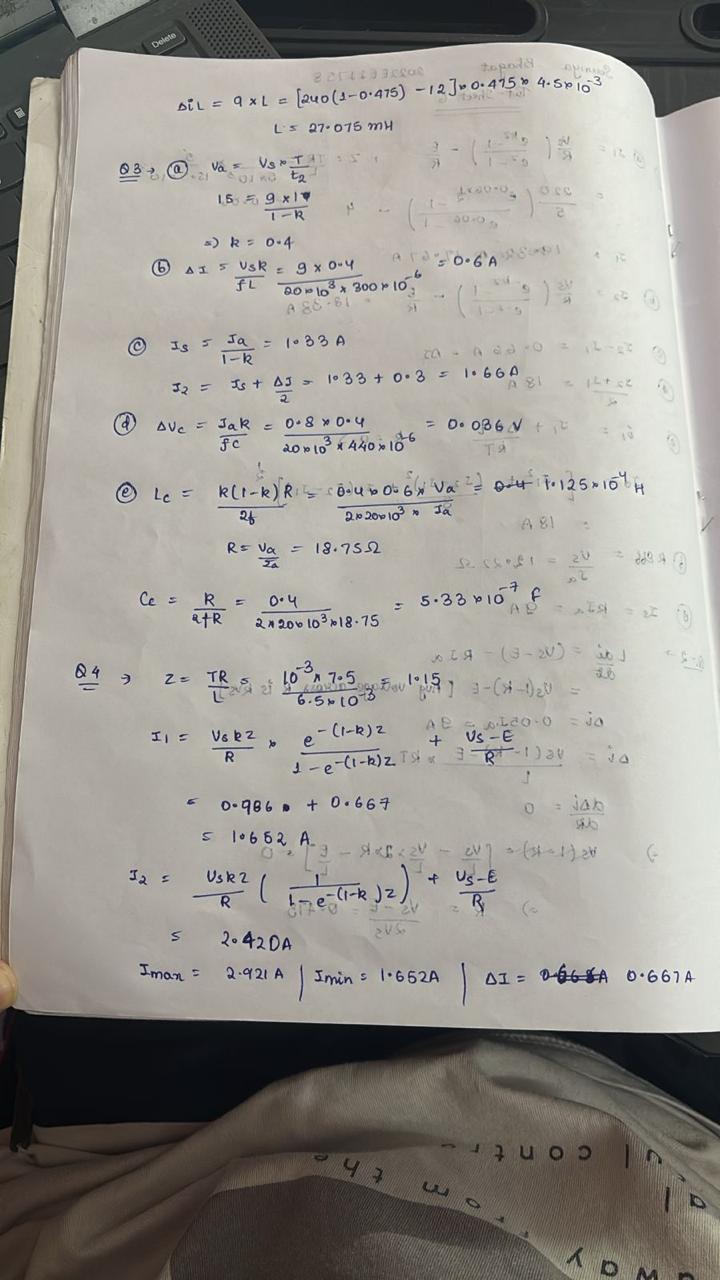 Delete
ΔiL = 9 × L = [240(1-0.475) - 12] × 0.475 × 4.5×10⁻³
L = 27.075 mH
Q3 → (a) Va = Vs × T / t2
15 = 9 × 1 / 1-k
=) k = 0.4
(b) ΔI = Vsk / fL = 9 × 0.4 / 20×10³ × 300×10⁻⁶ = 0.6 A
(c) Is = Ia / 1-k = 1.33 A
I2 = Is + ΔI / 2 = 1.33 + 0.3 = 1.66 A
(d) ΔVc = Iak / fc = 0.8 × 0.4 / 20×10³ × 440×10⁻⁶ = 0.036 V
(e) Lc = k(1-k)R / 2f = 0.4×0.6× Va / 2×20×10³ × Ia = 1.125×10⁻⁴ H
R = Va / Ia = 18.75Ω
Cc = k / 2fR = 0.4 / 2×20×10³×18.75 = 5.33×10⁻⁷ F
Q4 → Z = TR / L = 10⁻³ × 7.5 / 6.5×10⁻³ = 1.15
I1 = Vskz / R × e^-(1-k)z / 1-e^-(1-k)z + Vs-E / R
= 0.986 + 0.667
= 1.652 A
I2 = Vskz / R ( 1 / 1-e^-(1-k)z ) + Vs-E / R
= 2.420A
Imax = 2.421 A | Imin = 1.652A | ΔI = 0.667 A
ul contr
al
from the
way